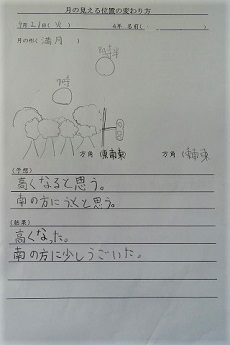 月の見える位置の変わり方
月21日(火) 4年 名前( )
月の形( 満月 )
方角(東南東) 方角(東南東)
(予想)
高くなると思う。
南の方にうごくと思う。
(結果)
高くなった。
南の方に少しうごいた。